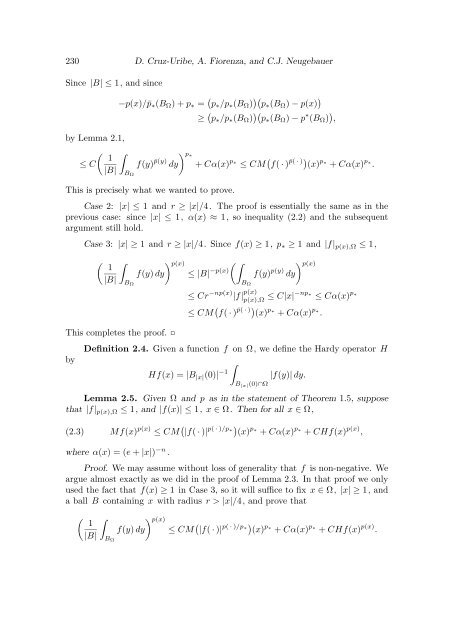 230 D. Cruz-Uribe, A. Fiorenza, and C.J. Neugebauer
Since |B| ≤ 1, and since
−p(x)/p̄∗(B_Ω) + p∗ = (p∗/p∗(B_Ω))(p∗(B_Ω) − p(x))
≥ (p∗/p∗(B_Ω))(p∗(B_Ω) − p*(B_Ω)),
by Lemma 2.1,
≤ C(1/|B| ∫_{B_Ω} f(y)^{p̄(y)} dy)^{p∗} + Cα(x)^{p∗} ≤ CM(f(·)^{p̄(·)})(x)^{p∗} + Cα(x)^{p∗}.
This is precisely what we wanted to prove.
Case 2: |x| ≤ 1 and r ≥ |x|/4. The proof is essentially the same as in the
previous case: since |x| ≤ 1, α(x) ≈ 1, so inequality (2.2) and the subsequent
argument still hold.
Case 3: |x| ≥ 1 and r ≥ |x|/4. Since f(x) ≥ 1, p∗ ≥ 1 and |f|_{p(x),Ω} ≤ 1,
(1/|B| ∫_{B_Ω} f(y) dy)^{p(x)} ≤ |B|^{−p(x)}(∫_{B_Ω} f(y)^{p(y)} dy)^{p(x)}
≤ Cr^{−np(x)}|f|^{p(x)}_{p(x),Ω} ≤ C|x|^{−np∗} ≤ Cα(x)^{p∗}
≤ CM(f(·)^{p̄(·)})(x)^{p∗} + Cα(x)^{p∗}.
This completes the proof. □
Definition 2.4. Given a function f on Ω, we define the Hardy operator H
by
Hf(x) = |B_{|x|}(0)|^{−1} ∫_{B_{|x|}(0)∩Ω} |f(y)| dy.
Lemma 2.5. Given Ω and p as in the statement of Theorem 1.5, suppose
that |f|_{p(x),Ω} ≤ 1, and |f(x)| ≤ 1, x ∈ Ω. Then for all x ∈ Ω,
(2.3) Mf(x)^{p(x)} ≤ CM(|f(·)|^{p(·)/p∗})(x)^{p∗} + Cα(x)^{p∗} + CHf(x)^{p(x)},
where α(x) = (e + |x|)^{−n}.
Proof. We may assume without loss of generality that f is non-negative. We
argue almost exactly as we did in the proof of Lemma 2.3. In that proof we only
used the fact that f(x) ≥ 1 in Case 3, so it will suffice to fix x ∈ Ω, |x| ≥ 1, and
a ball B containing x with radius r > |x|/4, and prove that
(1/|B| ∫_{B_Ω} f(y) dy)^{p(x)} ≤ CM(|f(·)|^{p(·)/p∗})(x)^{p∗} + Cα(x)^{p∗} + CHf(x)^{p(x)}.